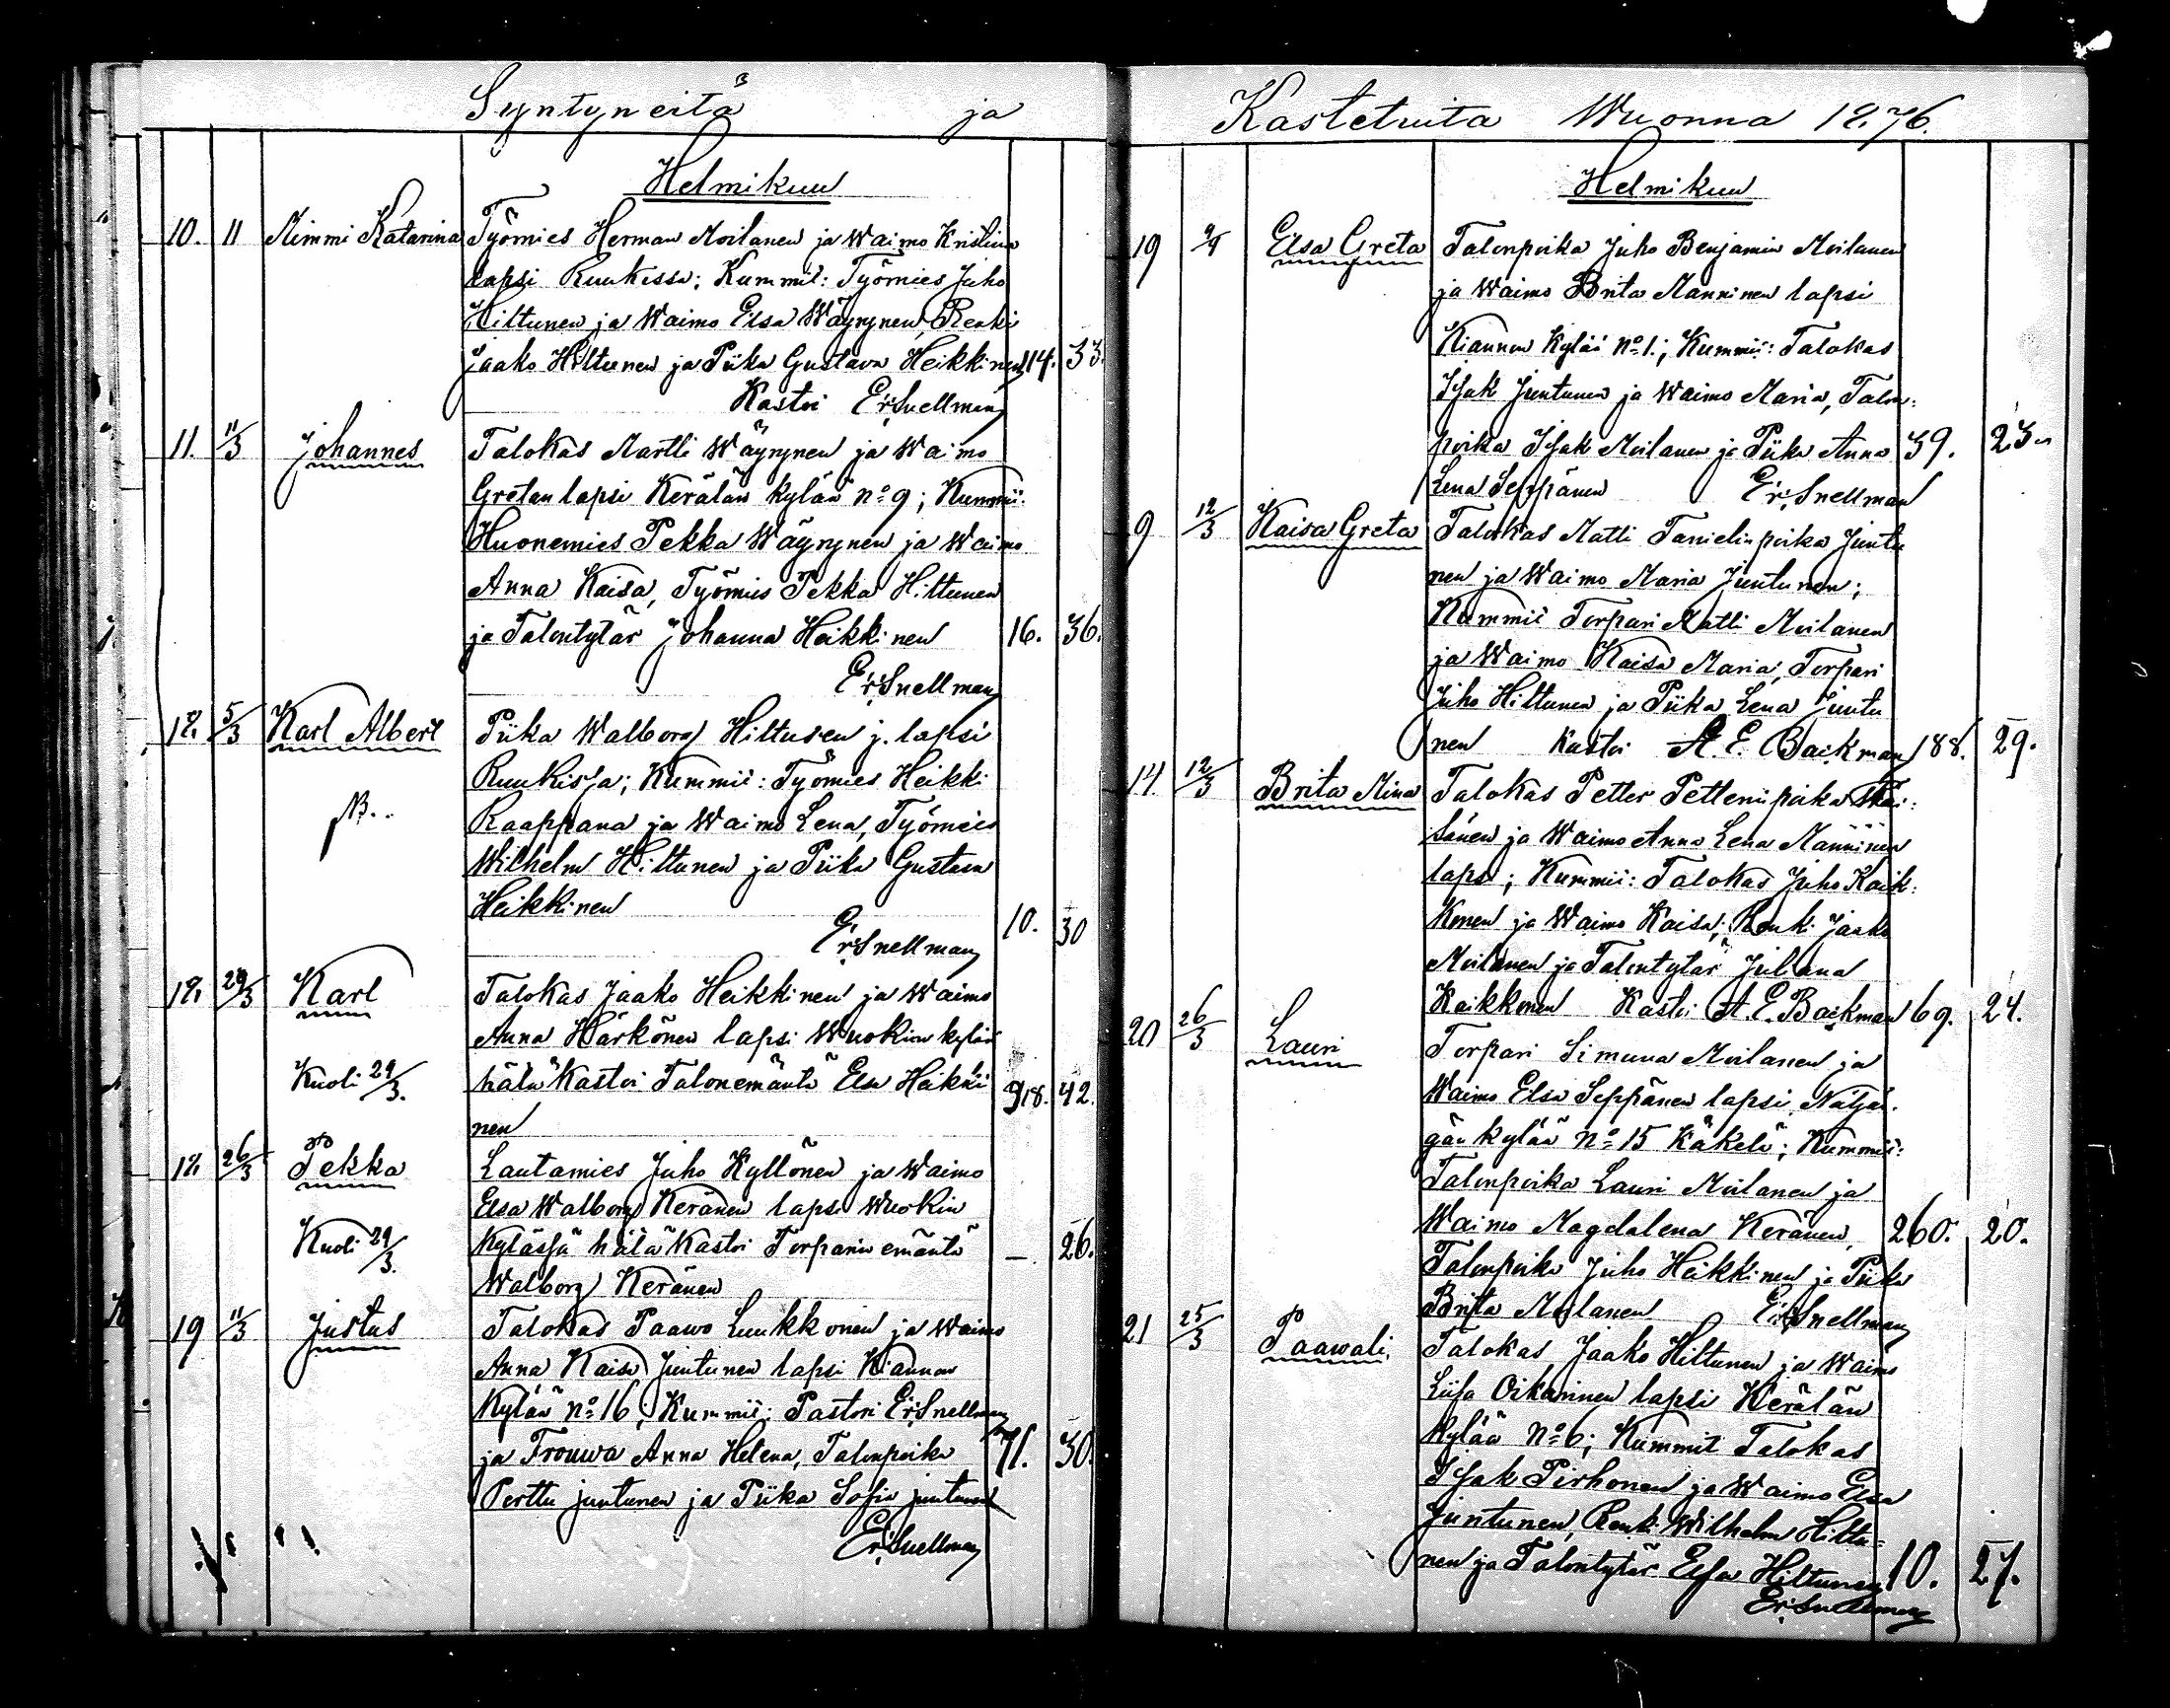 Syntyneitä ja
Helmikuu
10. 11 Mimmi Katarina Työmies Herman Moilanen ja Waimo Kristina
lapsi Ruukissa; Kummit: Työmies Juho
Hiltunen ja Waimo Elsa Wäyrynen, Renki
Jaako Hiltunen ja Piika Gustava Heikkinen 14. 33.
Kastoi Er. Snellman
11. 11/3 Johannes Talokas Martti Wäyrynen ja Waimo
Gretan lapsi Kerälän kylää No 9; Kummii:
Huonemies Pekka Wäyrynen ja Waimo
Anna Kaisa, Työmies Pekka Hiltunen
ja Talontytär Johanna Heikkinen 16. 36.
Er. Snellman
18. 5/3 Karl Albert Piika Walborg Hiltusen j. lapsi
Ruukissa; Kummii: Työmies Heikki
Raappana ja Waimo Lena, Työmies
Wilhelm Hiltunen ja Piika Gustava
Heikkinen 10. 30
Er. Snellman
18. 29/3 Karl Talokas Jaako Heikkinen ja Waimo
Anna Härkönen lapsi Wuokin kylää
Kuoli 29/3. hätä Kastoi Talonemäntä Elsa Heikki 318. 42.
nen
18. 26/3 Pekka Lautamies Juho Kyllönen ja Waimo
Elsa Walborg Keränen lapsi Wuokin
Kuoli 29/3. Kylässä hätä Kastoi Torparin emäntä — 26.
Walborg Keränen
19 11/3 Justus Talokas Paawo Luukkonen ja Waimo
Anna Kaisa Juntunen lapsi Kiannan
Kylää No 16; Kummii: Pastori Er. Snellman
ja Frouwa Anna Helena, Talonpoika 71. 30.
Perttu Juntunen ja Piika Sofia Juntunen
Er. Snellman
Kastetuita Wuonna 1876.
Helmikuu
19 9/4 Elsa Greta Talonpoika Juho Benjamin Moilanen
ja Waimo Brita Manninen lapsi
Kiannan Kylää No 1.; Kummii: Talokas
Isak Juntunen ja Waimo Maria, Talon:
poika Isak Moilanen ja Piika Anna 39. 23
Lena Seppänen Er. Snellman
9 12/3 Kaisa Greta Talokas Matti Tanielinpoika Juntu
nen ja Waimo Maria Juntunen;
Kummii Torpari Matti Moilanen
ja Waimo Kaisa Maria, Torpari
Juho Hiltunen ja Piika Lena Juntu
nen Kastoi A. E. Backman 188. 29.
14 12/3 Brita Mina Talokas Petter Petterinpoika
sänen ja Waimo Anna Lena Manninen
lapsi; Kummii: Talokas Juho Kaik:
Konen ja Waimo Kaisa; Renki Jaako
Moilanen ja Talontytär Juliana
Kaikkonen Kastoi A. E. Backman 69. 24.
20 26/3 Lauri Torpari Simuna Moilanen ja
Waimo Elsa Seppänen lapsi Näljän:
gän kylää No 15 Käkelä; Kummii:
Talonpoika Lauri Moilanen ja
Waimo Magdalena Keränen, 260. 20.
Talonpoika Juho Heikkinen ja Piika
Brita Moilanen Er. Snellman
21 25/3 Paawali Talokas Jaako Hiltunen ja Waimo
Liisa Oikarinen lapsi Kerälän
Kylää No 6; Kummit Talokas
Isak Pirhonen ja Waimo Elsa
Juntunen, Renki Wilhelm Hiltu=
nen ja Talontytär Elsa Hiltunen 10. 27.
Er. Snellman